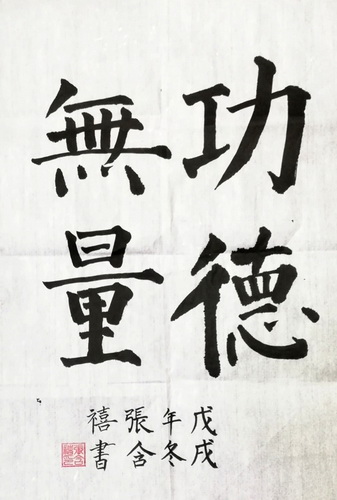 功德
無量
戊戌
年冬
張含
禧書